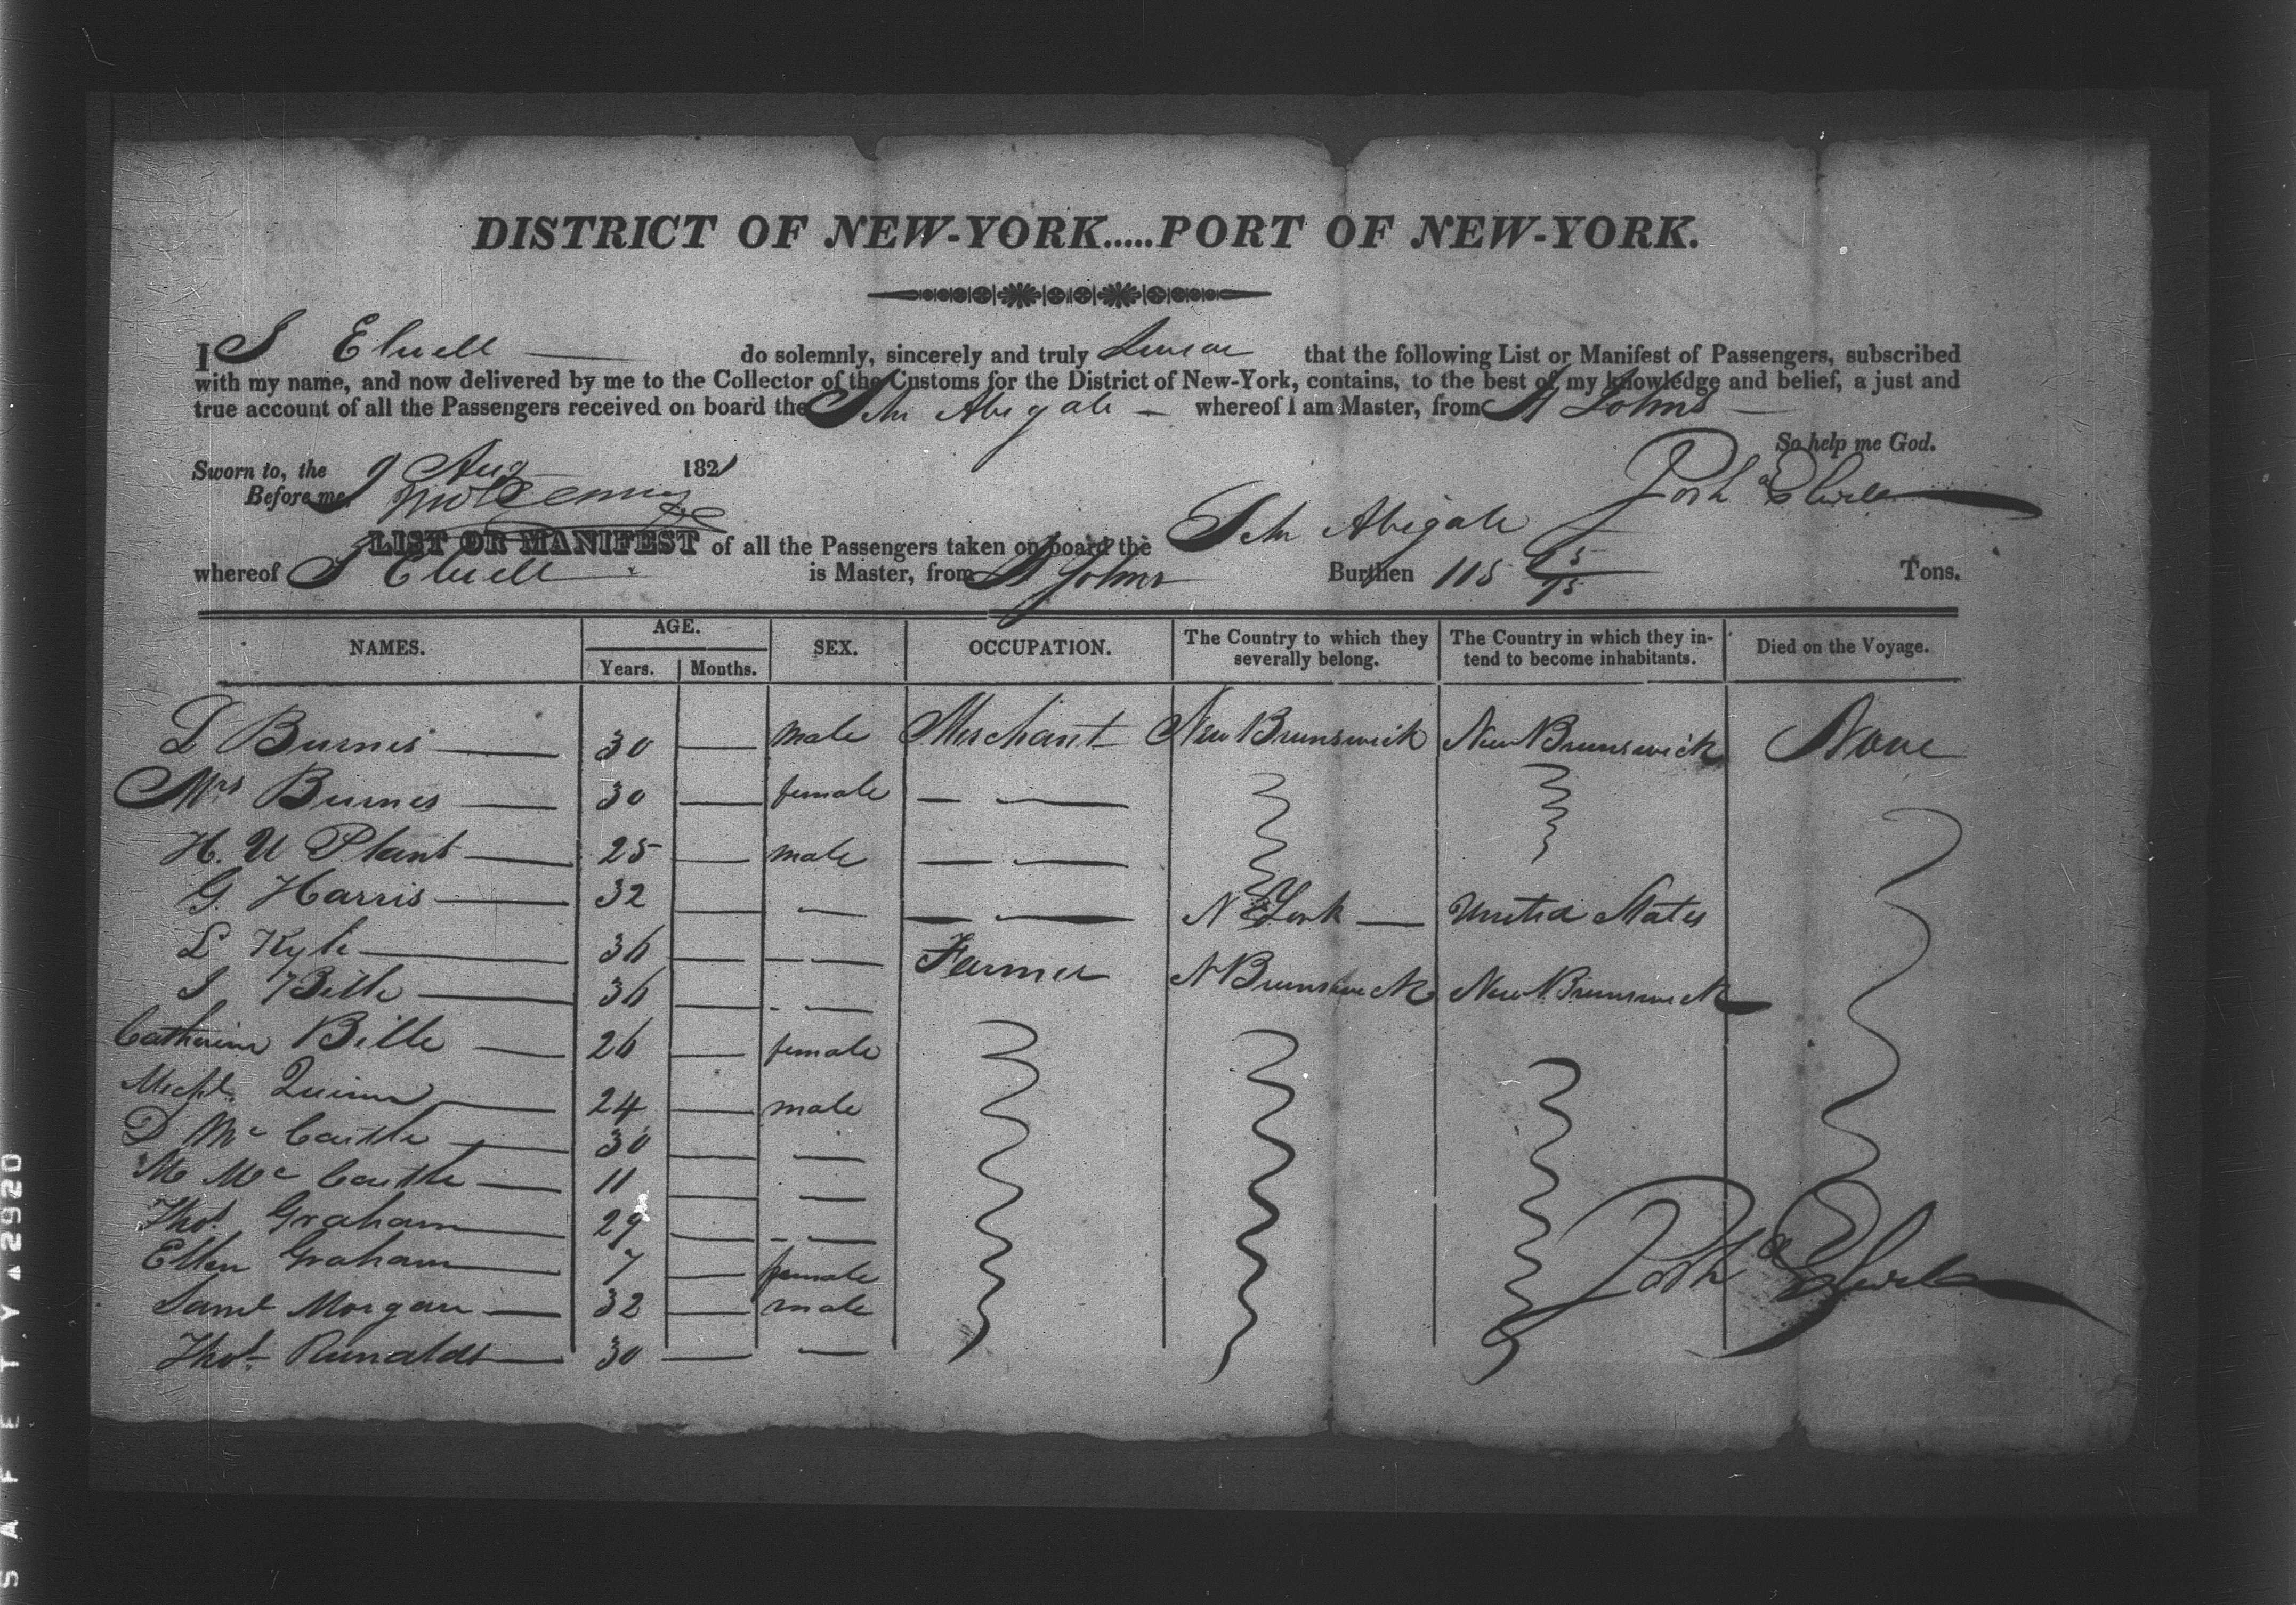 DISTRICT OF NEW-YORK.....PORT OF NEW-YORK.
I J Elwell do solemnly, sincerely and truly Swear that the following List or Manifest of Passengers, subscribed
with my name, and now delivered by me to the Collector of the Customs for the District of New-York, contains, to the best of my knowledge and belief, a just and
true account of all the Passengers received on board the Schr Abigale whereof I am Master, from St Johns
So help me God.
Sworn to, the 9 Aug 1821
Before me,
Schr Abigale
LIST OR MANIFEST of all the Passengers taken on board the
whereof J Elwell is Master, from St Johns Burthen 115 Tons.
NAMES. AGE. Years. Months. SEX. OCCUPATION. The Country to which they severally belong. The Country in which they intend to become inhabitants. Died on the Voyage.
L Burnes — 30 — male Merchant New Brunswick New Brunswick None
Mrs Burnes — 30 — female — —
H. U Plant — 25 — male — —
G. Harris — 32 — — — — N York — United States
L Kyle — 36 — — — Farmer N Brunswick New Brunswick
J Bille — 36 — - —
Catherine Bille — 26 — female
Michl. Quinn — 24 — male
D Mc Castle — 30 — —
M Mc Castle — 11 — —
Thos. Graham — 29 — - —
Ellen Graham — 7 — female
Saml Morgan — 32 — male
Thos. Runalds — 30 — —
SAFETY ▲ 2920